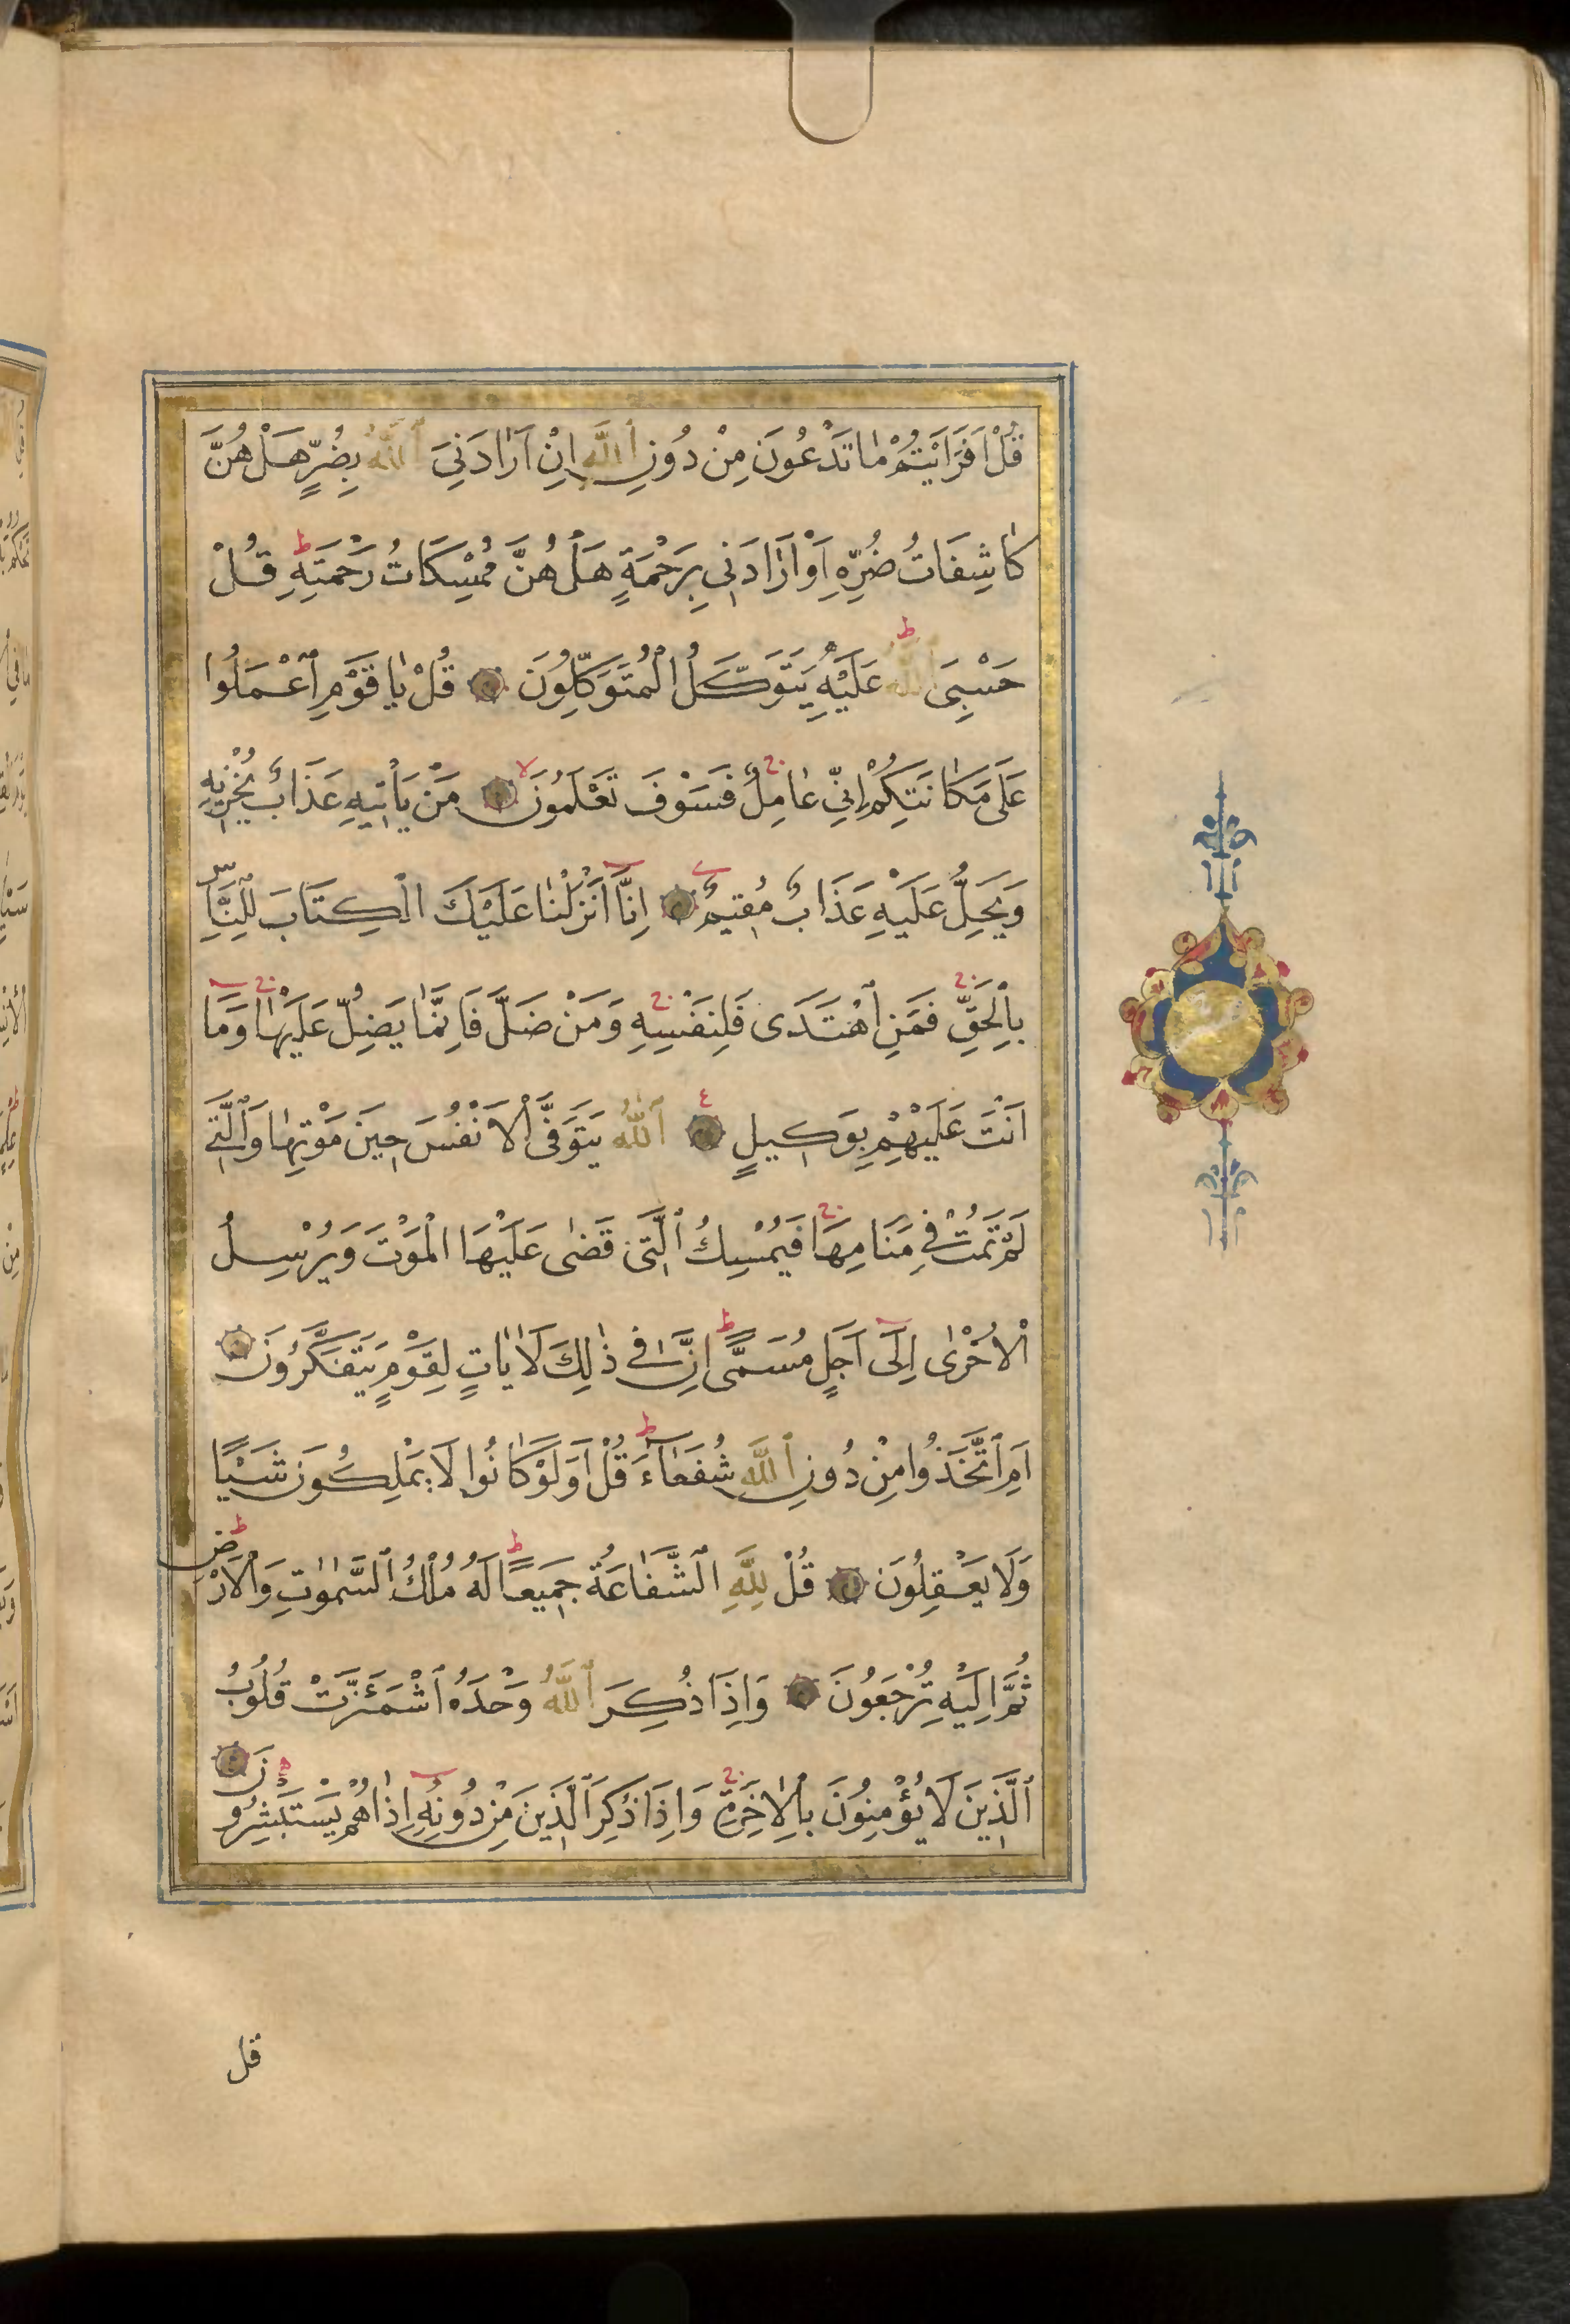 قُلْ اَفَرَاَيْتُمْ مٰا تَدْعُونَ مِنْ دُونِ ٱللَّهِ اِنْ اَرٰادَنِىَ ٱللَّهُ بِضُرٍّ هَلْ هُنَّ
كٰاشِفَاتُ ضُرِّهِ اَوْ اَرٰادَنِى بِرَحْمَةٍ هَلْ هُنَّ مُمْسِكَاتُ رَحْمَتِهِ ط قُلْ
حَسْبِىَ ٱللَّهُ ط عَلَيْهِ يَتَوَكَّلُ الْمُتَوَكِّلُونَ قُلْ يٰا قَوْمِ ٱعْمَلُوا
عَلَى مَكٰانَتِكُمْ اِنِّى عٰامِلٌ ج فَسَوْفَ تَعْلَمُونَ لا مَنْ يَاْتِيهِ عَذَابٌ يُخْزِيهِ
وَيَحِلُّ عَلَيْهِ عَذَابٌ مُقِيمٌ اِنَّا اَنْزَلْنٰا عَلَيْكَ الْكِتَابَ لِلنَّاسِ
بِالْحَقِّ ج فَمَنِ ٱهْتَدَى فَلِنَفْسِهِ ج وَمَنْ ضَلَّ فَاِنَّمٰا يَضِلُّ عَلَيْهٰا ج وَمَا
اَنْتَ عَلَيْهِمْ بِوَكِيلٍ ع ٱللَّهُ يَتَوَفَّى الْاَنْفُسَ حِينَ مَوْتِهٰا وَالَّتِى
لَمْ تَمُتْ فِى مَنَامِهَا ج فَيُمْسِكُ ٱلَّتِى قَضٰى عَلَيْهَا الْمَوْتَ وَيُرْسِلُ
الْاُخْرٰى اِلَى اَجَلٍ مُسَمًّى ط اِنَّ فِى ذٰلِكَ لَاٰيٰاتٍ لِقَوْمٍ يَتَفَكَّرُونَ
اَمِ ٱتَّخَذُوا مِنْ دُونِ ٱللَّهِ شُفَعٰاءَ ط قُلْ اَوَلَوْ كٰانُوا لَا يَمْلِكُونَ شَيْئًا
وَلَا يَعْقِلُونَ قُلْ لِلَّهِ ٱلشَّفٰاعَةُ جَمِيعًا ط لَهُ مُلْكُ ٱلسَّمٰوٰتِ وَالْاَرْضِ ط
ثُمَّ اِلَيْهِ تُرْجَعُونَ وَاِذَا ذُكِرَ ٱللَّهُ وَحْدَهُ ٱشْمَئَزَّتْ قُلُوبُ
ٱلَّذِينَ لَا يُؤْمِنُونَ بِالْاٰخِرَةِ ج وَاِذَا ذُكِرَ ٱلَّذِينَ مِنْ دُونِهِ اِذٰا هُمْ يَسْتَبْشِرُونَ
قل